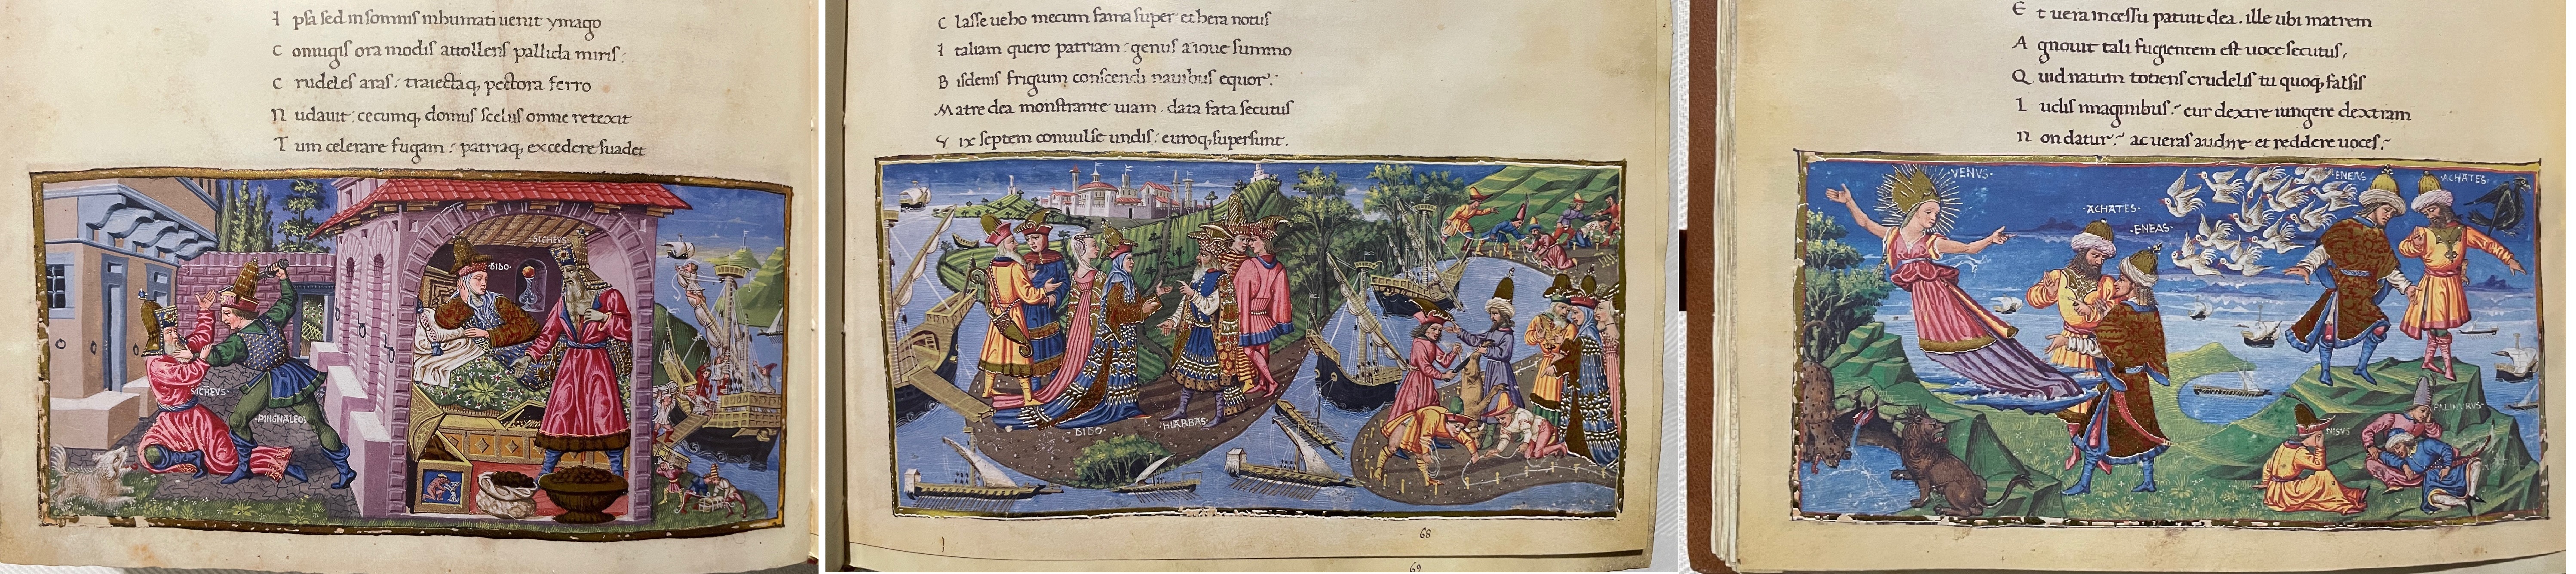 I psa sed in somnis inhumati uenit ymago
C oniugis ora modis attollens pallida miris:
C rudeles aras: traiectaq, pectora ferro
N udauit: cecumq, domus scelus omne retexit
T um celerare fugam: patriaq, excedere suadet
DIDO
SICHEVS
SICHEVS
PIIGNALEOS
C lasse ueho mecum fama super ethera notus
I taliam quero patriam: genus a ioue summo
B isdenis frigum conscendi nauibus equor:
M atre dea monstrante uiam. data fata secutus
V ix septem conuulse undis: euroq, supersunt.
DIDO
HIARBAS
68
69
E t uera incessu patuit dea. ille ubi matrem
A gnouit tali fugientem est uoce secutus,
Q uid natum totiens crudelis tu quoq, falsis
L udis imaginibus: cur dextre iungere dextram
N on datur: ac ueras audire et reddere uoces,
VENVS
ACHATES
ENEAS
ENEAS
ACHATES
NISVS
PALINVRVS